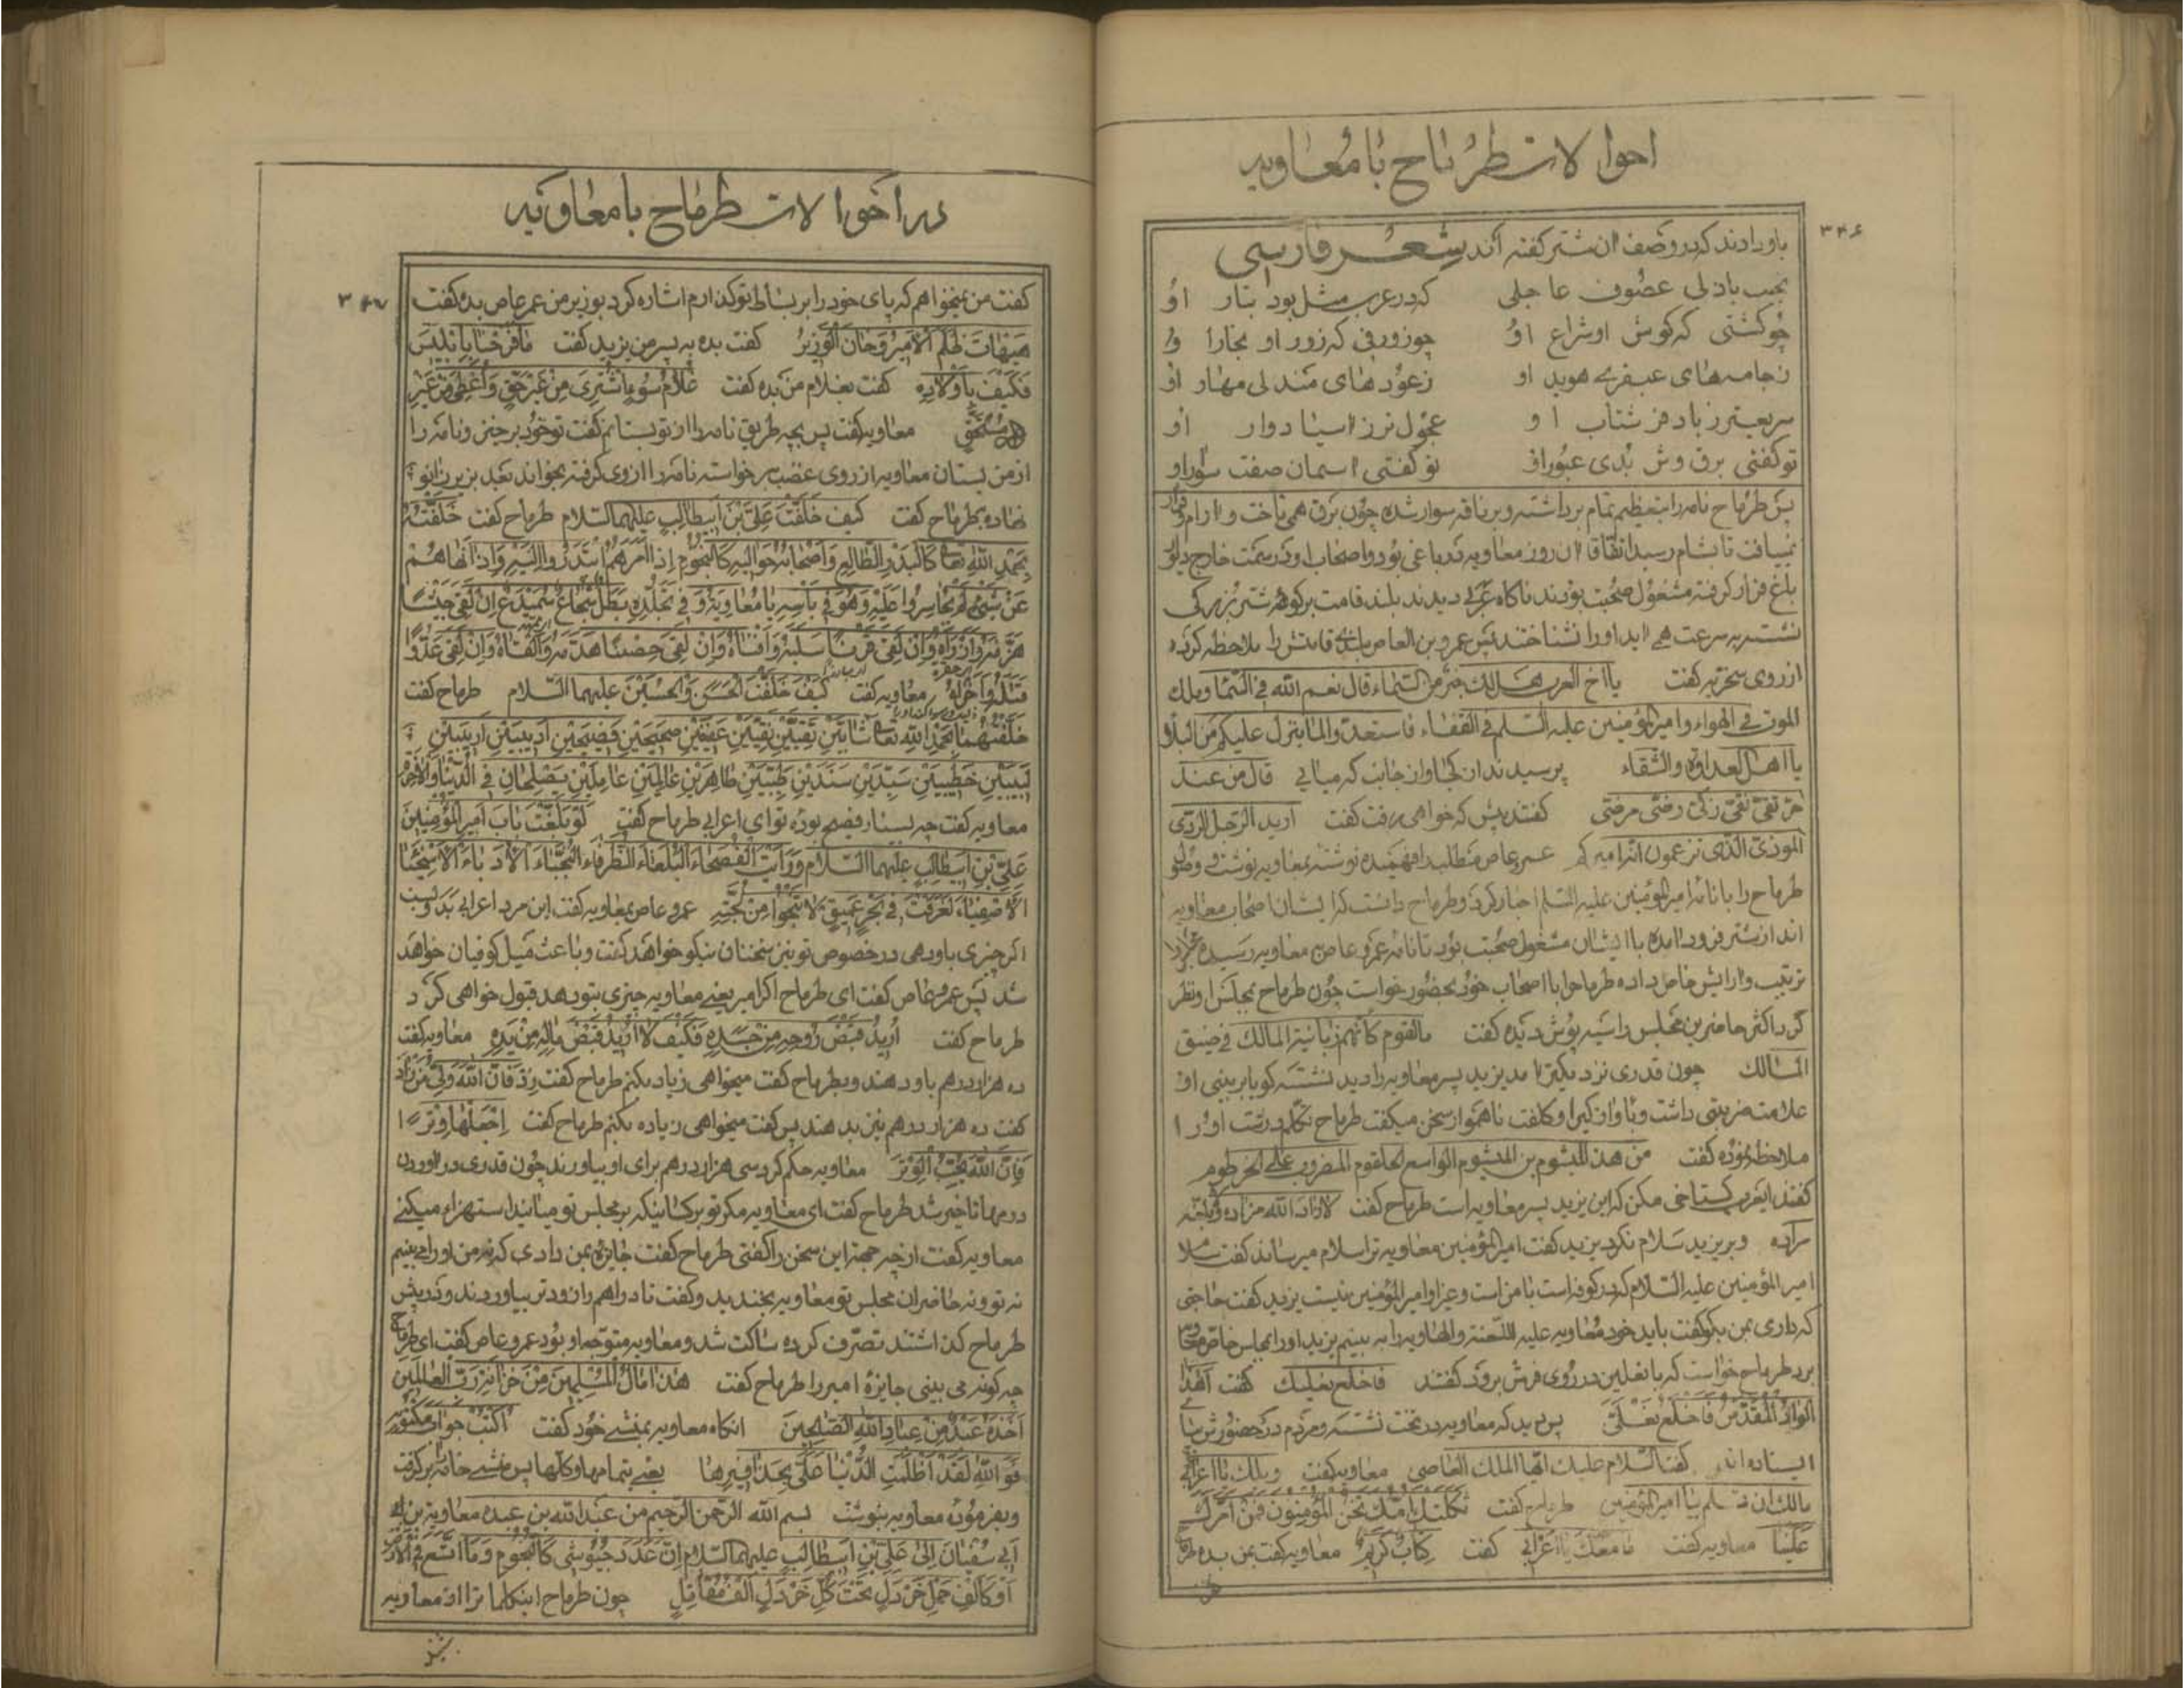 احوالات طرماح بامعاویه
۳۴۶
باو دادند که در وصف آن شتر گفته اند شعر فارسی
عجب باد لی عضوف عاجلی که در عرب مثل بود بتار او
چو کشتی که گوش او شراع او چو زورقی که زور او مجارا و
زجامه‌های عبقری هوید او زعودهای مندلی مهار او
سریعتر ز باد در شتاب او عجول تر ز اسیا دوار او
تو گفتی برق وش بدی عبور او تو گفتی اسمان صفت سوار او
پس طرماح نامه را بتعظیم تمام برداشته و بر ناقه سوار شده چون برق همی تاخت و ارام و قرار
نمییافت تا بشام رسید اتفاقا آن روز معاویه در باغی بود و اصحاب او در سمت خارج دیوار
باغ قرار گرفته مشغول صحبت بودند ناگاه عربی دیدند بلند قامت بر کوهه شتر بزرگی
نشسته بسرعت همی اید او را نشناختند پس عمرو بن العاص قامتش را ملاحظه کرده
از روی سخریه گفت یا اخ العرب هل لک خبر من السماء قال نعم الله فی السماء و ملک
الموت فی الهواء و امیر المؤمنین علیه السلم فی القفاء فاستعدوا لما ینزل علیکم من البلاء
یا اهل العداوة والشقاء پرسیدند از کجا و از جانب که میایی قال من عند
حر تقی نقی زکی رضی مرضی گفتند پیش که خواهی رفت گفت ارید الرجل الردی
الموذی الذی تزعمون انه امیرکم عمرو عاص مطلب را فهمیده نوشته بمعاویه نوشت و وصول
طرماح را با نامه امیر المؤمنین علیه السلم اخبار کرد و طرماح دانست که ایشان اصحاب معاویه
اند از شتر فرود امده با ایشان مشغول صحبت بود تا نامه عمرو عاص بمعاویه رسیده مجلس را
ترتیب و ارایش خاص داده طرماح را با اصحاب خود بحضور خواست چون طرماح بمجلس او نظر
کرد اکثر حاضرین مجلس را سیه پوش دیده گفت مالقوم کأنهم زبانیة المالک فی ضیق
المسالک چون قدری نزدیکتر امد یزید پسر معاویه را دید نشسته گویا بر بینی او
علامت ضربتی داشت و باواز کبرا و کلفت ناهموار سخن میگفت طرماح تکلم درشت او را
ملاحظه نموده گفت من هذا المیشوم بن المیشوم الواسع الحلقوم المضروب علی الخرطوم
گفتند ایعرب گستاخی مکن که این یزید پسر معاویه است طرماح گفت لا زاد الله مزاده و لا بلغه
مراده و بر یزید سلام نکرد یزید گفت امیر المؤمنین معاویه ترا سلام میرساند گفت سلام
امیر المؤمنین علیه السلام که در کوفه است با من است و غیر او امیر المؤمنین نیست یزید گفت حاجتی
که داری بمن بگو گفت باید خود معاویه علیه اللعنة والهاویه را به بینم یزید او را بمجلس خاص معاویه
برد طرماح خواست که با نعلین در روی فرش برود گفتند فاخلع نعلیک گفت اهذا
الواد المقدس فاخلع نعلی پس دید که معاویه در تخت نشسته و مردم در حضورش بپا
ایستاده اند گفت السلام علیک ایها الملک العاصی معاویه گفت ویلک یا اعرابی
مالک ان تسلم بیا امیر المؤمنین طرماح گفت ثکلتک امک نحن المؤمنون فمن امرک
علینا معاویه گفت ما معک یا اعرابی گفت کتاب کریم معاویه گفت بمن بده طرماح
در احوالات طرماح بامعاویه
۳۴۷
گفت من نمیخواهم که پای خود را بر بساط تو گذارم اشاره کرد بوزیر من عمر عاص بده گفت
هیهات ظلم الامیر و خان الوزیر گفت بده به پسر من یزید گفت ما فرحنا بابلیس
فکیف باولاده گفت بغلام من بده گفت غلام سوء اشتری من غیر حق و اعطی من غیر
مستحق معاویه گفت پس بچه طریق نامه را از تو بستانم گفت تو خود برخیز و نامه را
از من بستان معاویه از روی غضب برخواسته نامه را از وی گرفته بخواند بعد بزیر زانو
نهاده بطرماح گفت کیف خلفت علی بن ابیطالب علیهما السلام طرماح گفت خلفته
بحمد الله تعالی کالبدر الطالع و اصحابه حوالیه کالنجوم اذا امرهم ابتدروا الیه و اذا نهاهم
عن شیئ لم یجاسروا علیه و هو فی باسه یا معاویة و فی تجلده بطل شجاع سمیدع ان لقی جیشا
هزمه و ارداه و ان لقی قرنا سلبه و افناه و ان لقی حصنا هدمه و القاه و ان لقی عدوا
قتله و اخزاه معاویه گفت کیف خلفت الحسن و الحسین علیهما السلام طرماح گفت
خلفتهما بحمد الله تعالی شابین تقیین نقیین عفیفین صحیحین فصیحین ادیبین اریبین
لبیبین خطیبین سیدین سندین طیبین طاهرین عالمین عاملین یصلحان فی الدنیا و الاخرة
معاویه گفت چه بسیار فصیح بوده تو ای اعرابی طرماح گفت لو بلغت باب امیر المؤمنین
علی بن ابیطالب علیهما السلام و رایت الفصحاء البلغاء الظرفاء النجباء الادباء الاسخیاء
الاصفیاء لغرقت فی بحر عمیق لا تنجوا من لجته عمرو عاص بمعاویه گفت این مرد اعرابی بدویست
اگر چیزی باو دهی در خصوص تو نیز سخنان نیکو خواهد گفت و باعث میل کوفیان خواهد
شد پس عمرو عاص گفت ای طرماح اگر امیر یعنی معاویه چیزی بتو دهد قبول خواهی کرد
طرماح گفت ارید قبض روحه من جسده فکیف لا ارید قبض ماله من یده معاویه گفت
ده هزار درهم باو دهند و بطرماح گفت میخواهی زیاد بکنم طرماح گفت زد فان الله ولی من زاد
گفت ده هزار درهم نیز بدهند پس گفت میخواهی زیاده بکنم طرماح گفت اجعلها وترا
فان الله یحب الوتر معاویه حکم کرد سی هزار درهم برای او بیاورند چون قدری در اوردن
درمها تاخیر شد طرماح گفت ای معاویه مگر تو بر کسانیکه بر مجلس تو میایند استهزاء میکنی
معاویه گفت از چه جهة این سخن را گفتی طرماح گفت جایزه بمن دادی که نه من او را می بینم
نه تو و نه حاضران مجلس تو معاویه بخندید و گفت تا دراهم را زودتر بیاوردند و در پیش
طرماح گذاشتند تصرف کرده ساکت شد و معاویه متوجه او بود عمرو عاص گفت ای طرماح
چه گونه می بینی جایزه امیر را طرماح گفت هذا مال المسلمین من خزانة رب العالمین
اخذه عبد من عباد الله الصالحین انگاه معاویه بمنشی خود گفت اکتب جواب مکتوبه
فو الله لقد اظلمت الدنیا علی بحذافیرها یعنی بتمامها و کلها پس منشی خامه برگرفت
و بفرموده معاویه بنوشت بسم الله الرحمن الرحیم من عبد الله بن عبده معاویة بن
ابی سفیان الی علی بن ابیطالب علیهما السلام ان عدد جیوشی کالنجوم و ما اتسع فی الارض
او کالف حمل خردل تحت کل خردل الف مقاتل چون طرماح اینکلمات را از معاویه